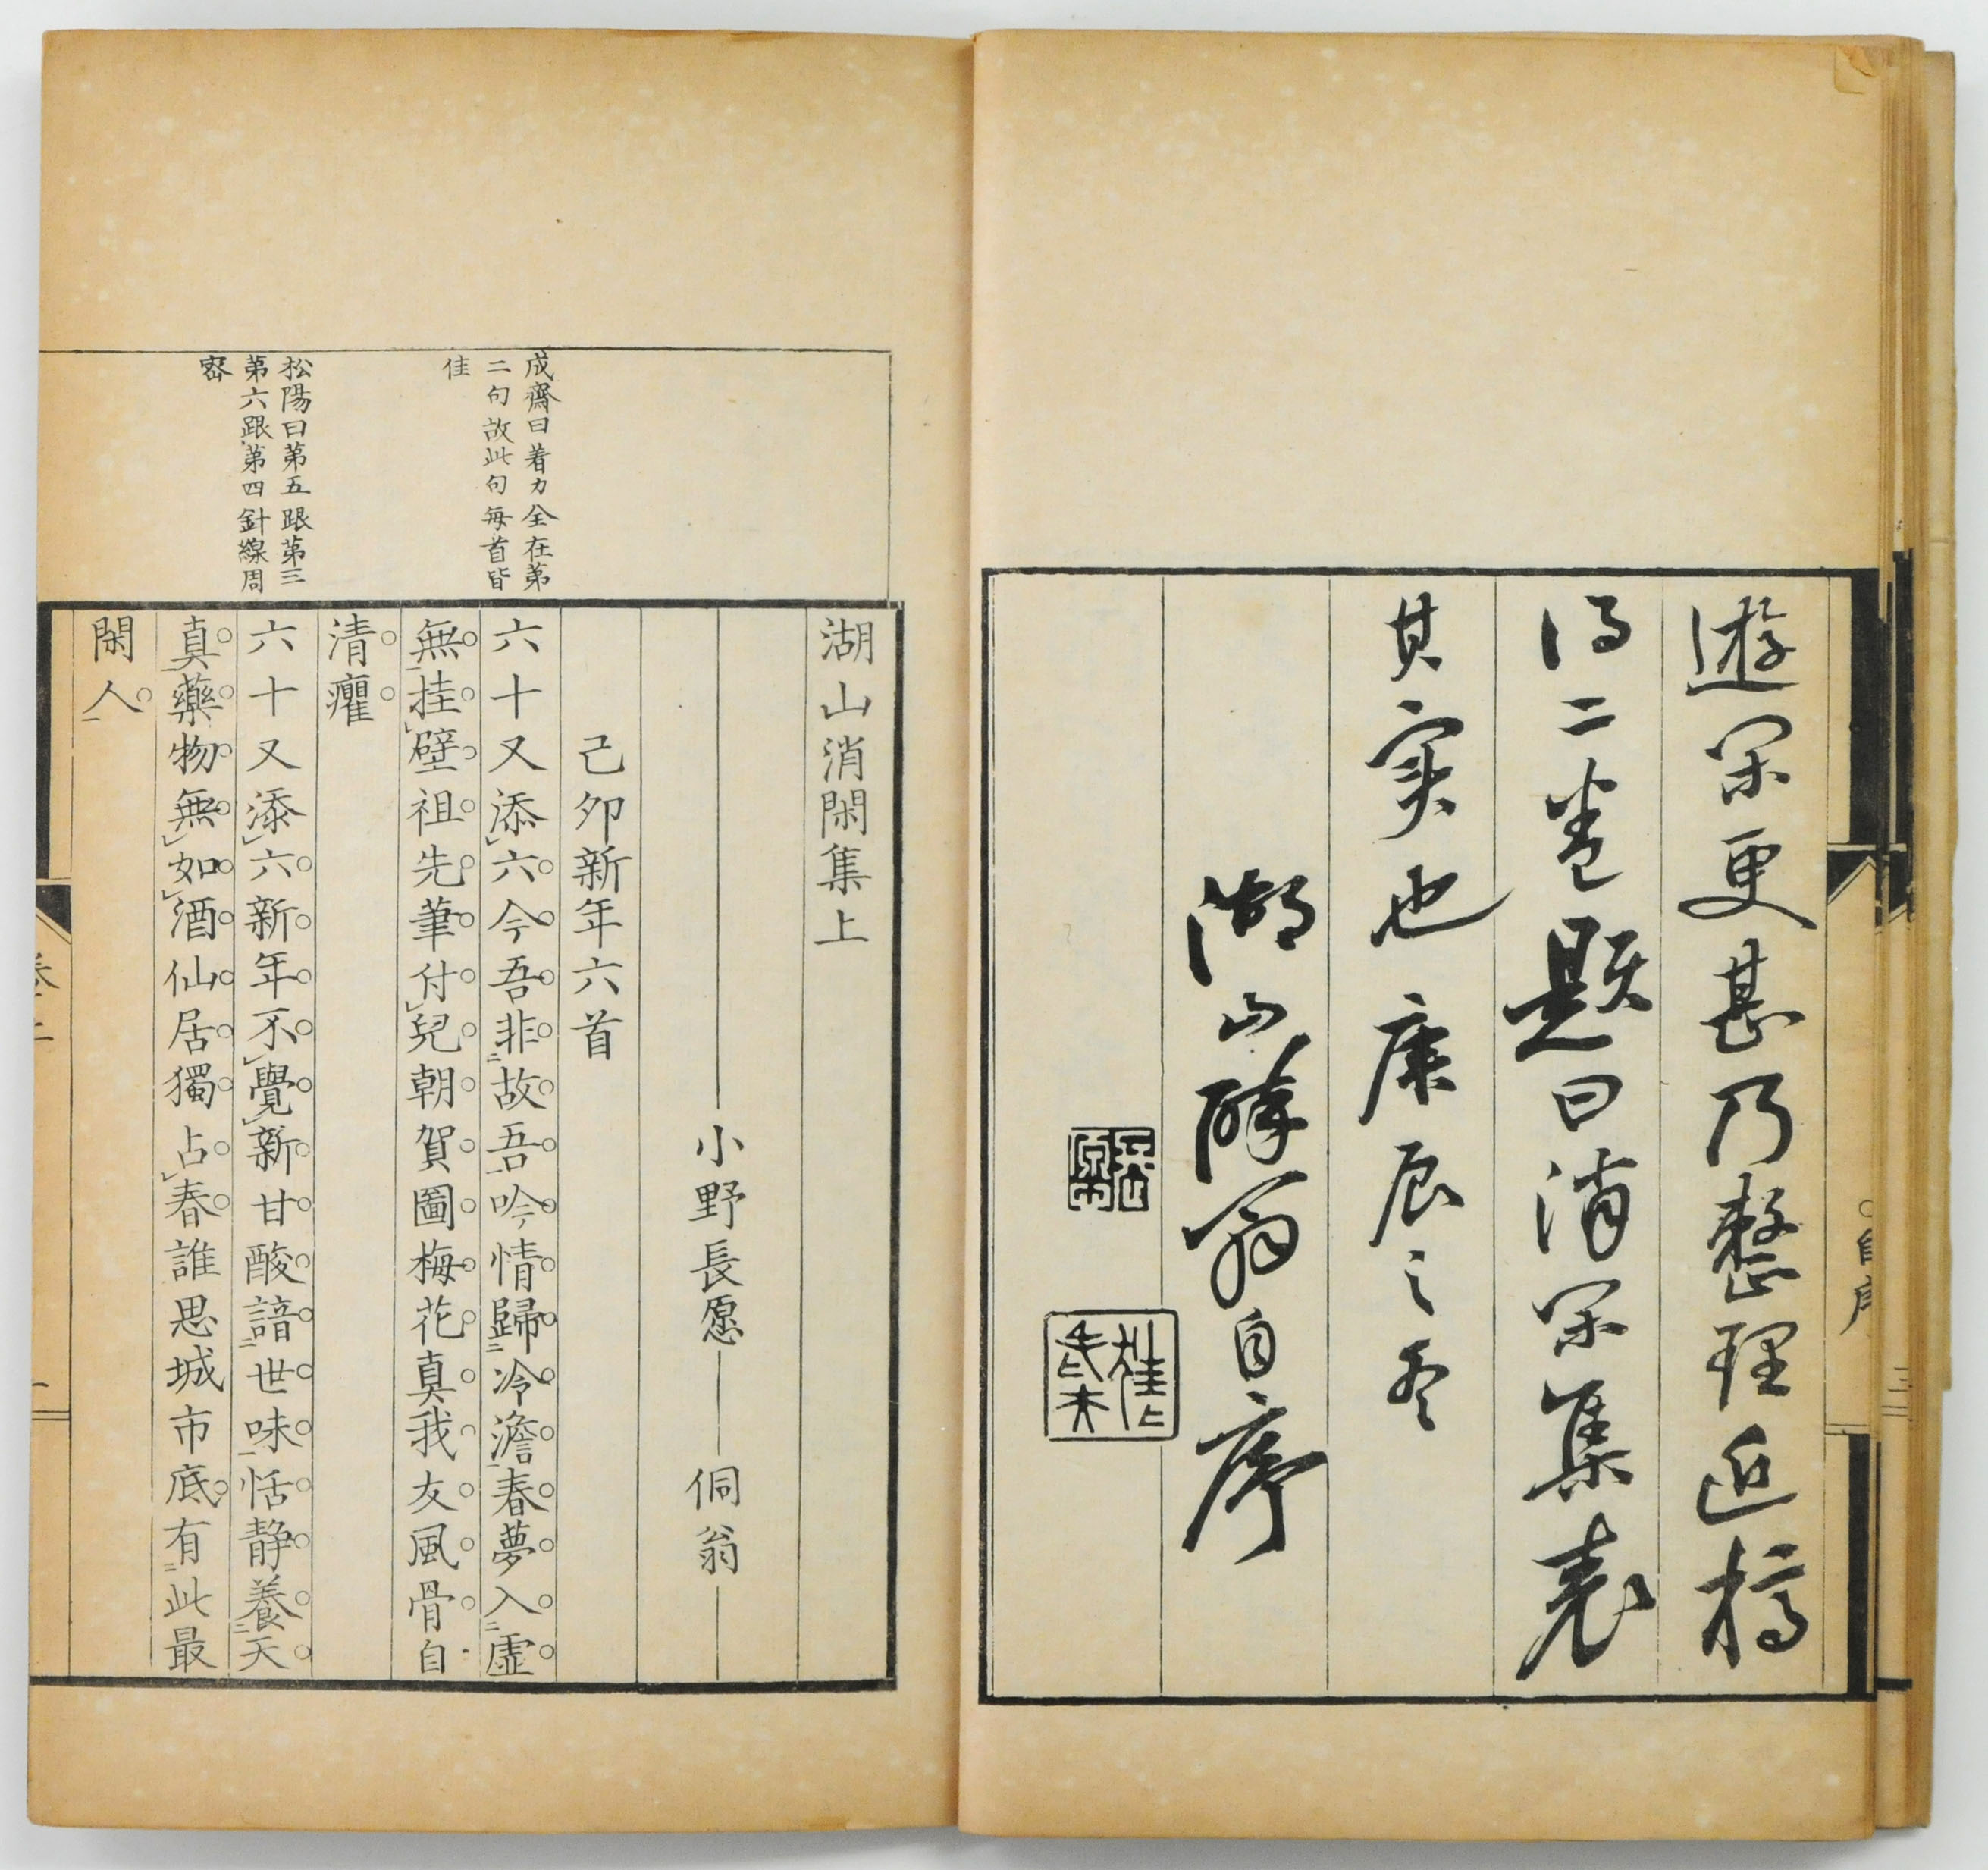 遊閑更甚乃整理近稿
得二巻題曰消閑集表
其実也庚辰之冬
湖山酔翁自序
自序
三
湖山消閑集上
小野長愿
侗翁
己卯新年六首
六十又添六今吾非故吾吟情歸冷澹春夢入虛
無挂壁祖先筆付兒朝賀圖梅花真我友風骨自
清癯
六十又添六新年不覺新甘酸諳世味恬静養天
真藥物無如酒仙居獨占春誰思城市底有此最
閑人
成齋曰着力全在第
二句故此句每首皆
佳
松陽曰第五跟第三
第六跟第四針線周
密